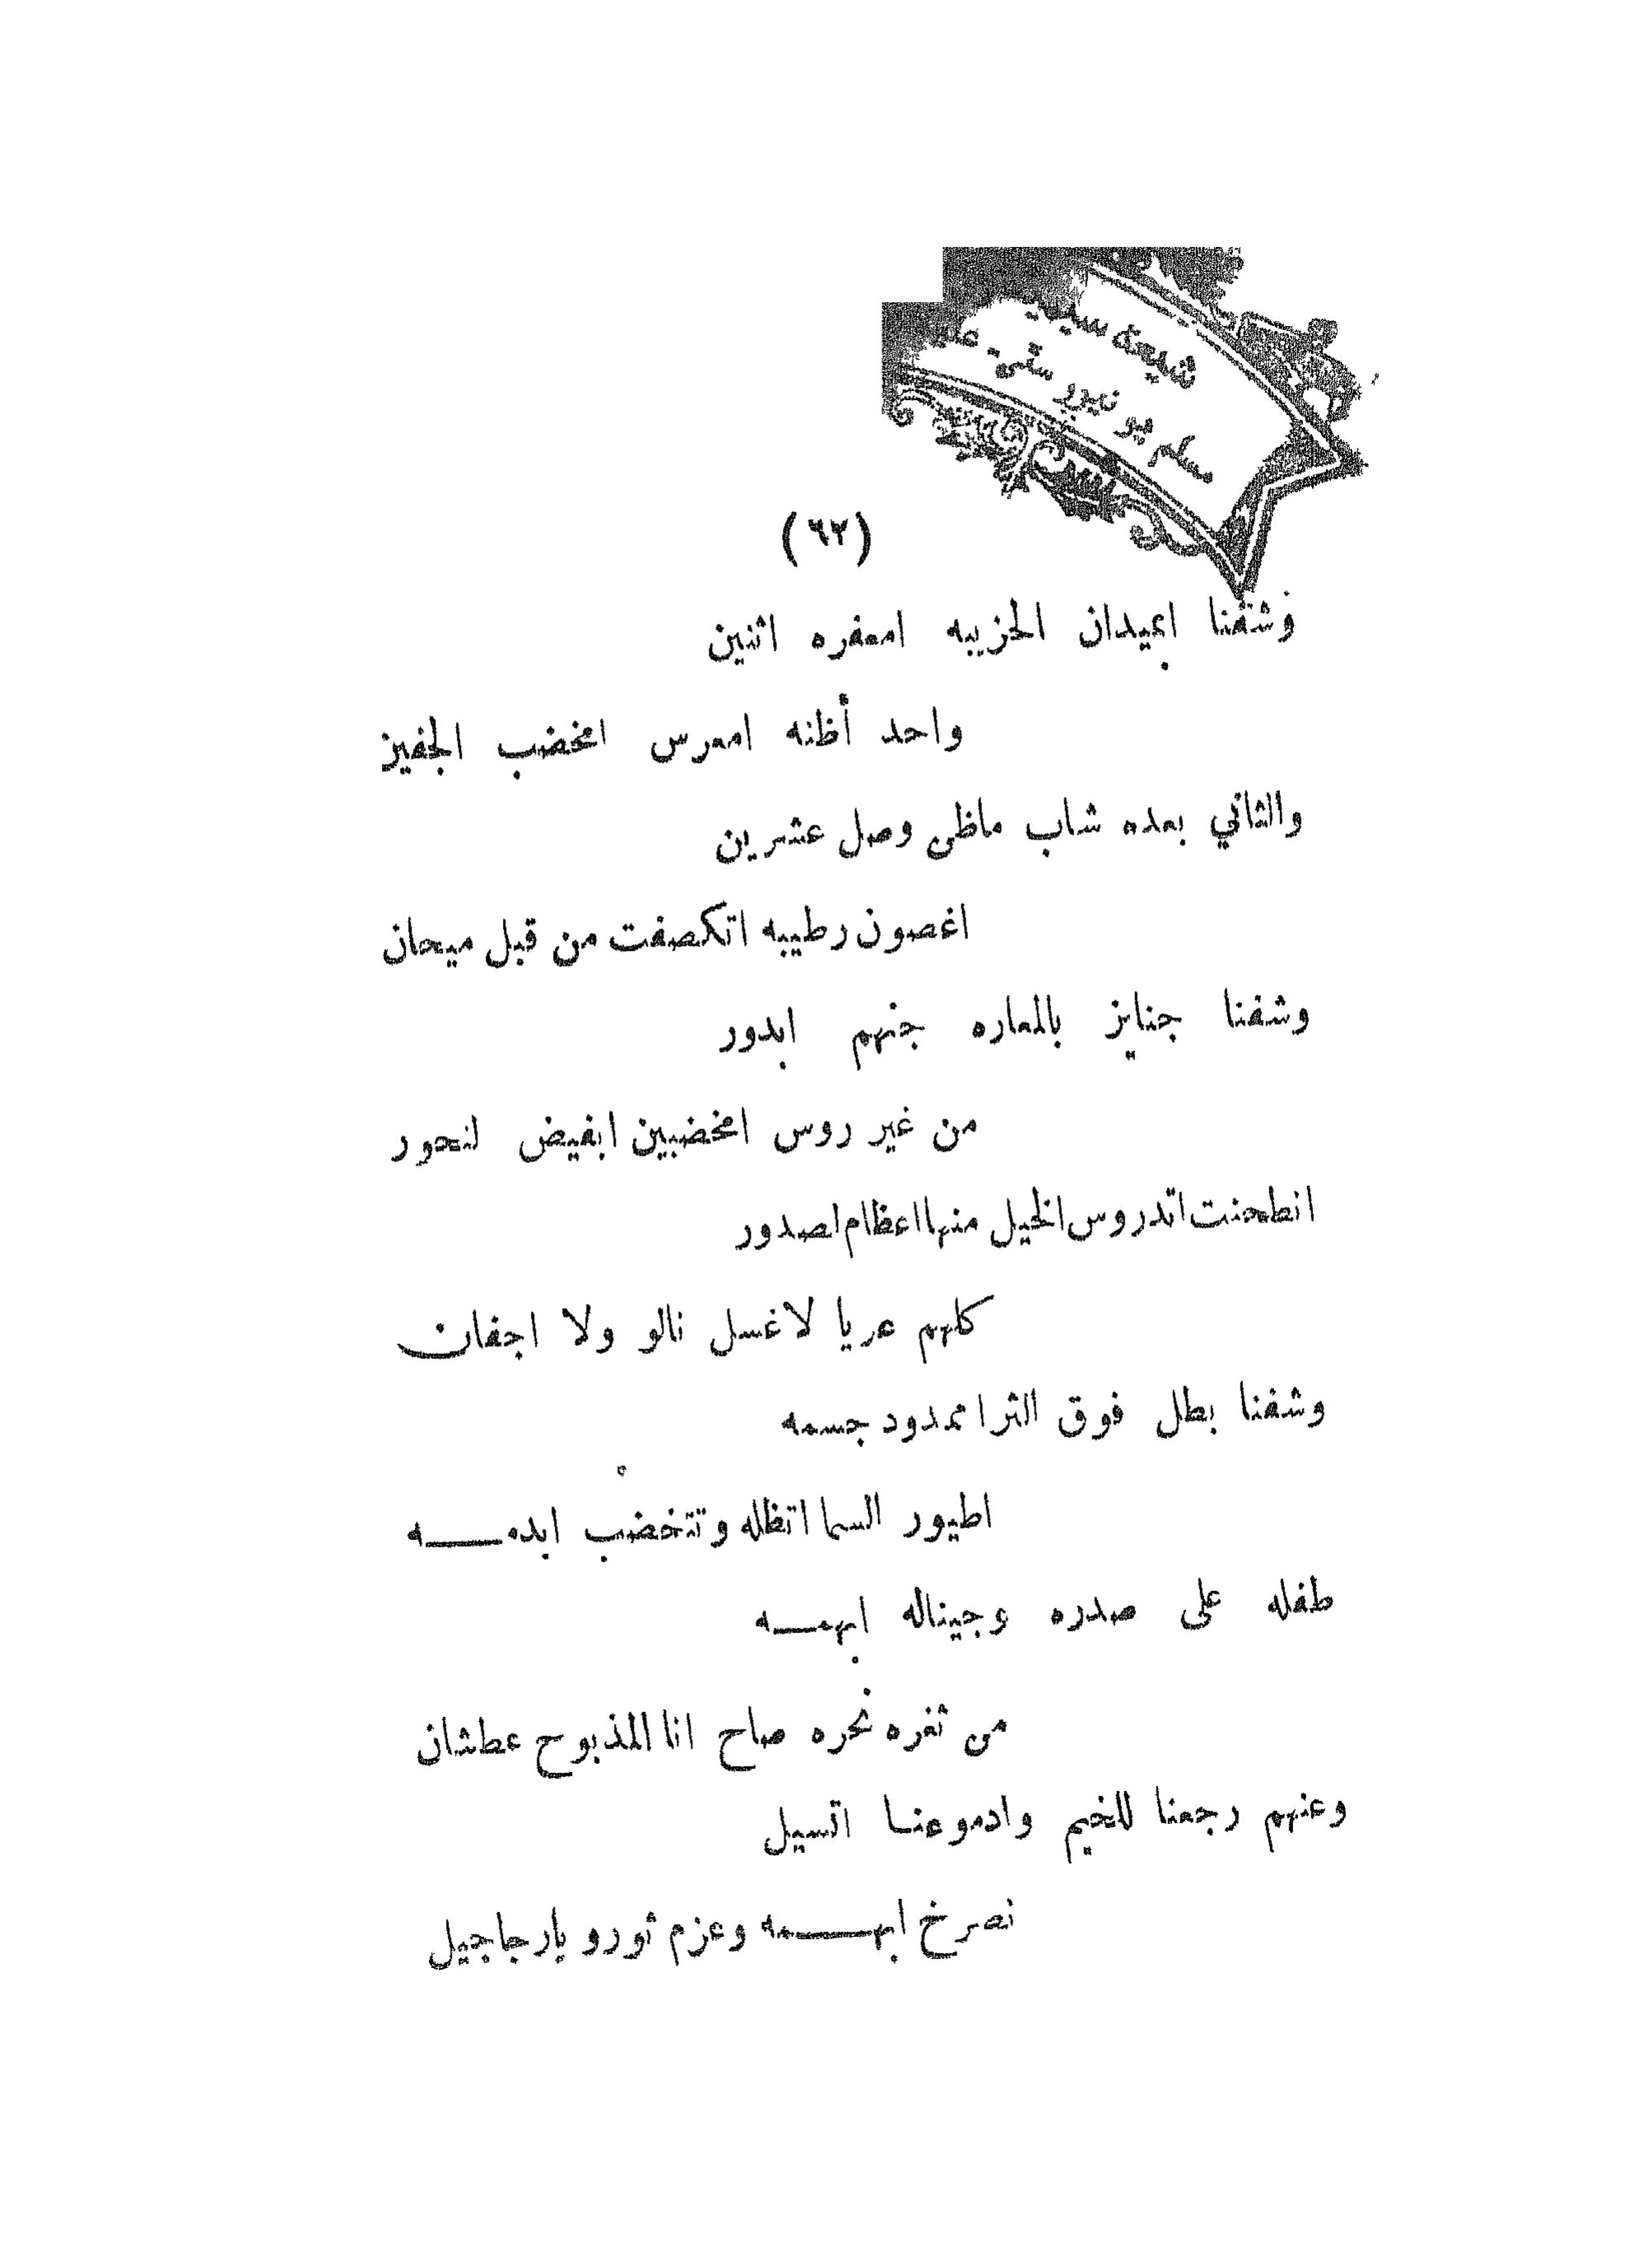 شيعة
مسلم يو نيور سٹی۔ علی
(٦٢)
وشفنا ابميدان الحزيبه امعفره اثنين
واحد أظنه امعرس امخضب الجفين
والثاني بعده شاب ماظن وصل عشرين
اغصون رطيبه اتكصفت من قبل ميحان
وشفنا جنايز بالمعاره جنهم ابدور
من غير روس امخضبين ابفيض لنحور
انطحنت اتدروس الخيل منها اعظام لصدور
كلهم عريا لاغسل نالو ولا اجفان
وشفنا بطل فوق الثرا ممدود جسمه
اطيور السما اتظلله وتتخضب ابدمـــه
طفله على صدره وجيناله ابهمـــه
من ثغره نحره صاح انا المذبوح عطشان
وعنهم رجعنا للخيم وادموعنا اتسيل
نصرخ ابهـــمه وعزم ثورو يارجاجيل